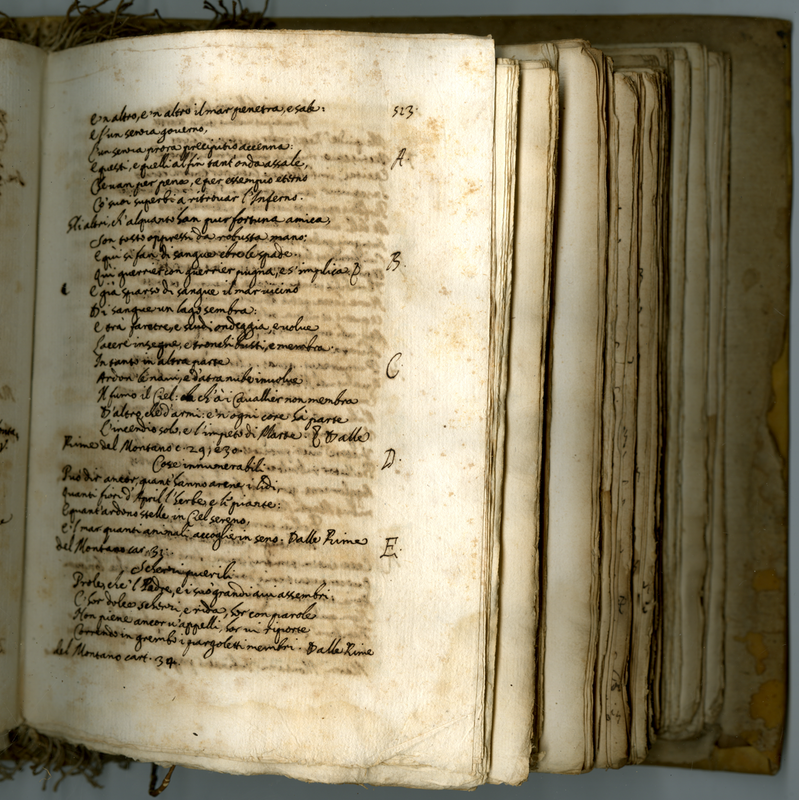 523.
E 'n altro, e 'n altro il mar penetra, e sale:
E s'un senza governo,
L'un senza prora precipitio accenna:
E questi, e quelli al fin tant'onda assale,
Che van per pena, e per essempio eterno
Co' suoi superbi à ritrovar l'Inferno.
A.
Gli altri, ch'alquanto han pur fortuna amica,
Son tosto oppressi da robusta mano:
E qui si fan di sangue ebre le spade.
Qui guerrier con guerrier pugna, e s'implica
B.
E già sparso di sangue il mar vicino
Di sangue un lago sembra:
E trà faretre, e scudi ondeggia, e volve
Lacere insegne, e tronchi busti, e membra.
In tanto in altra parte
Ardon le navi, e d'atra nube involve
C.
Il fumo il Ciel: ch'à i Cavallier non membra
D'altro, che d'armi: e 'n ogni core hà parte
L'incendio solo, e l'impeto di Marte. Dalle
Rime del Montano c. 29, e 30.
D.
Cose innumerabili.
Può dir ancor, quant'hanno arene i lidi,
Quanti fiori d'April l'herbe, e le piante:
E quant'ardono stelle in Ciel sereno,
E 'l mar quanti animali accoglie in seno. Dalle Rime
del Montano car. 33.
E.
Scherzi puerili.
Prole, che 'l Padre, e i suo' grandi avi assembri,
C'hor dolce scherzi, e rida, hor con parole
Non piene ancor n'appelli, hor in
Correndo in grembo i pargoletti membri. Dalle Rime
del Montano cart. 34.